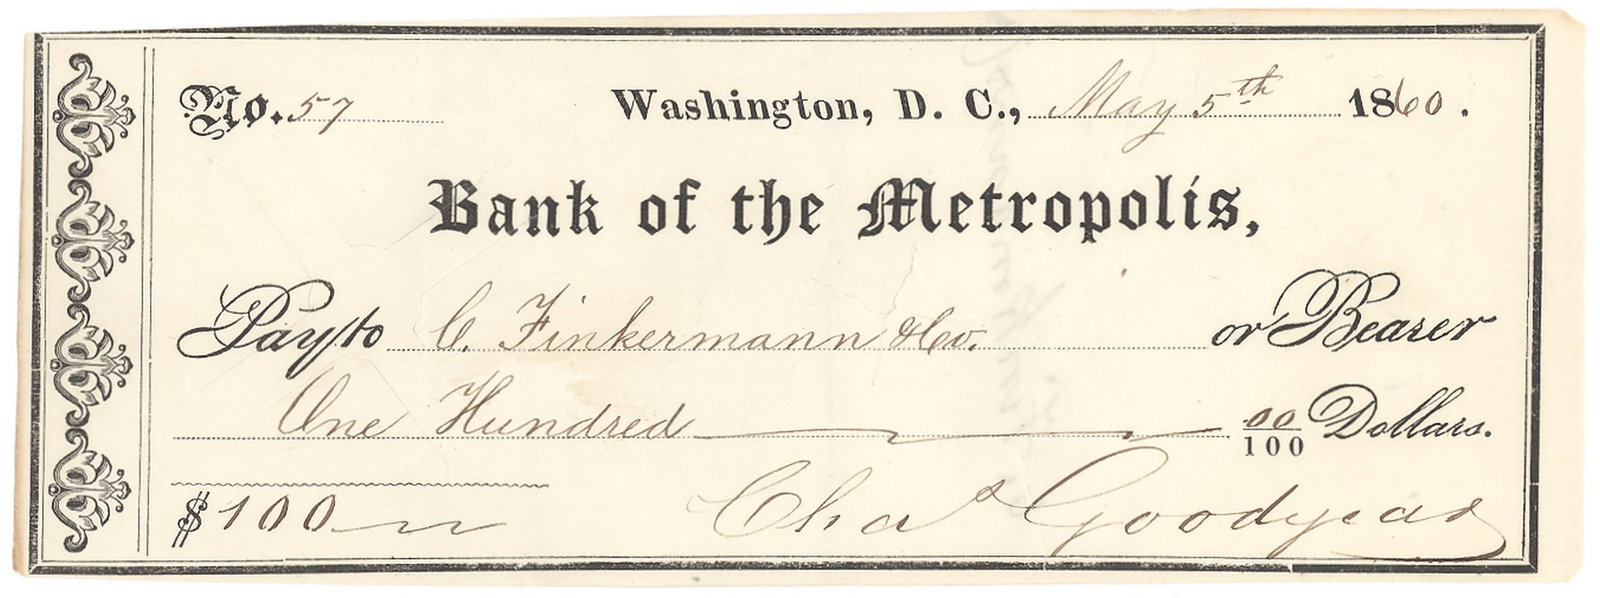 No. 57 Washington, D. C., May 5th 1860.
Bank of the Metropolis,
Pay to C. Finkermann & Co. or Bearer
One Hundred 00/100 Dollars.
$100 Chas Goodyear